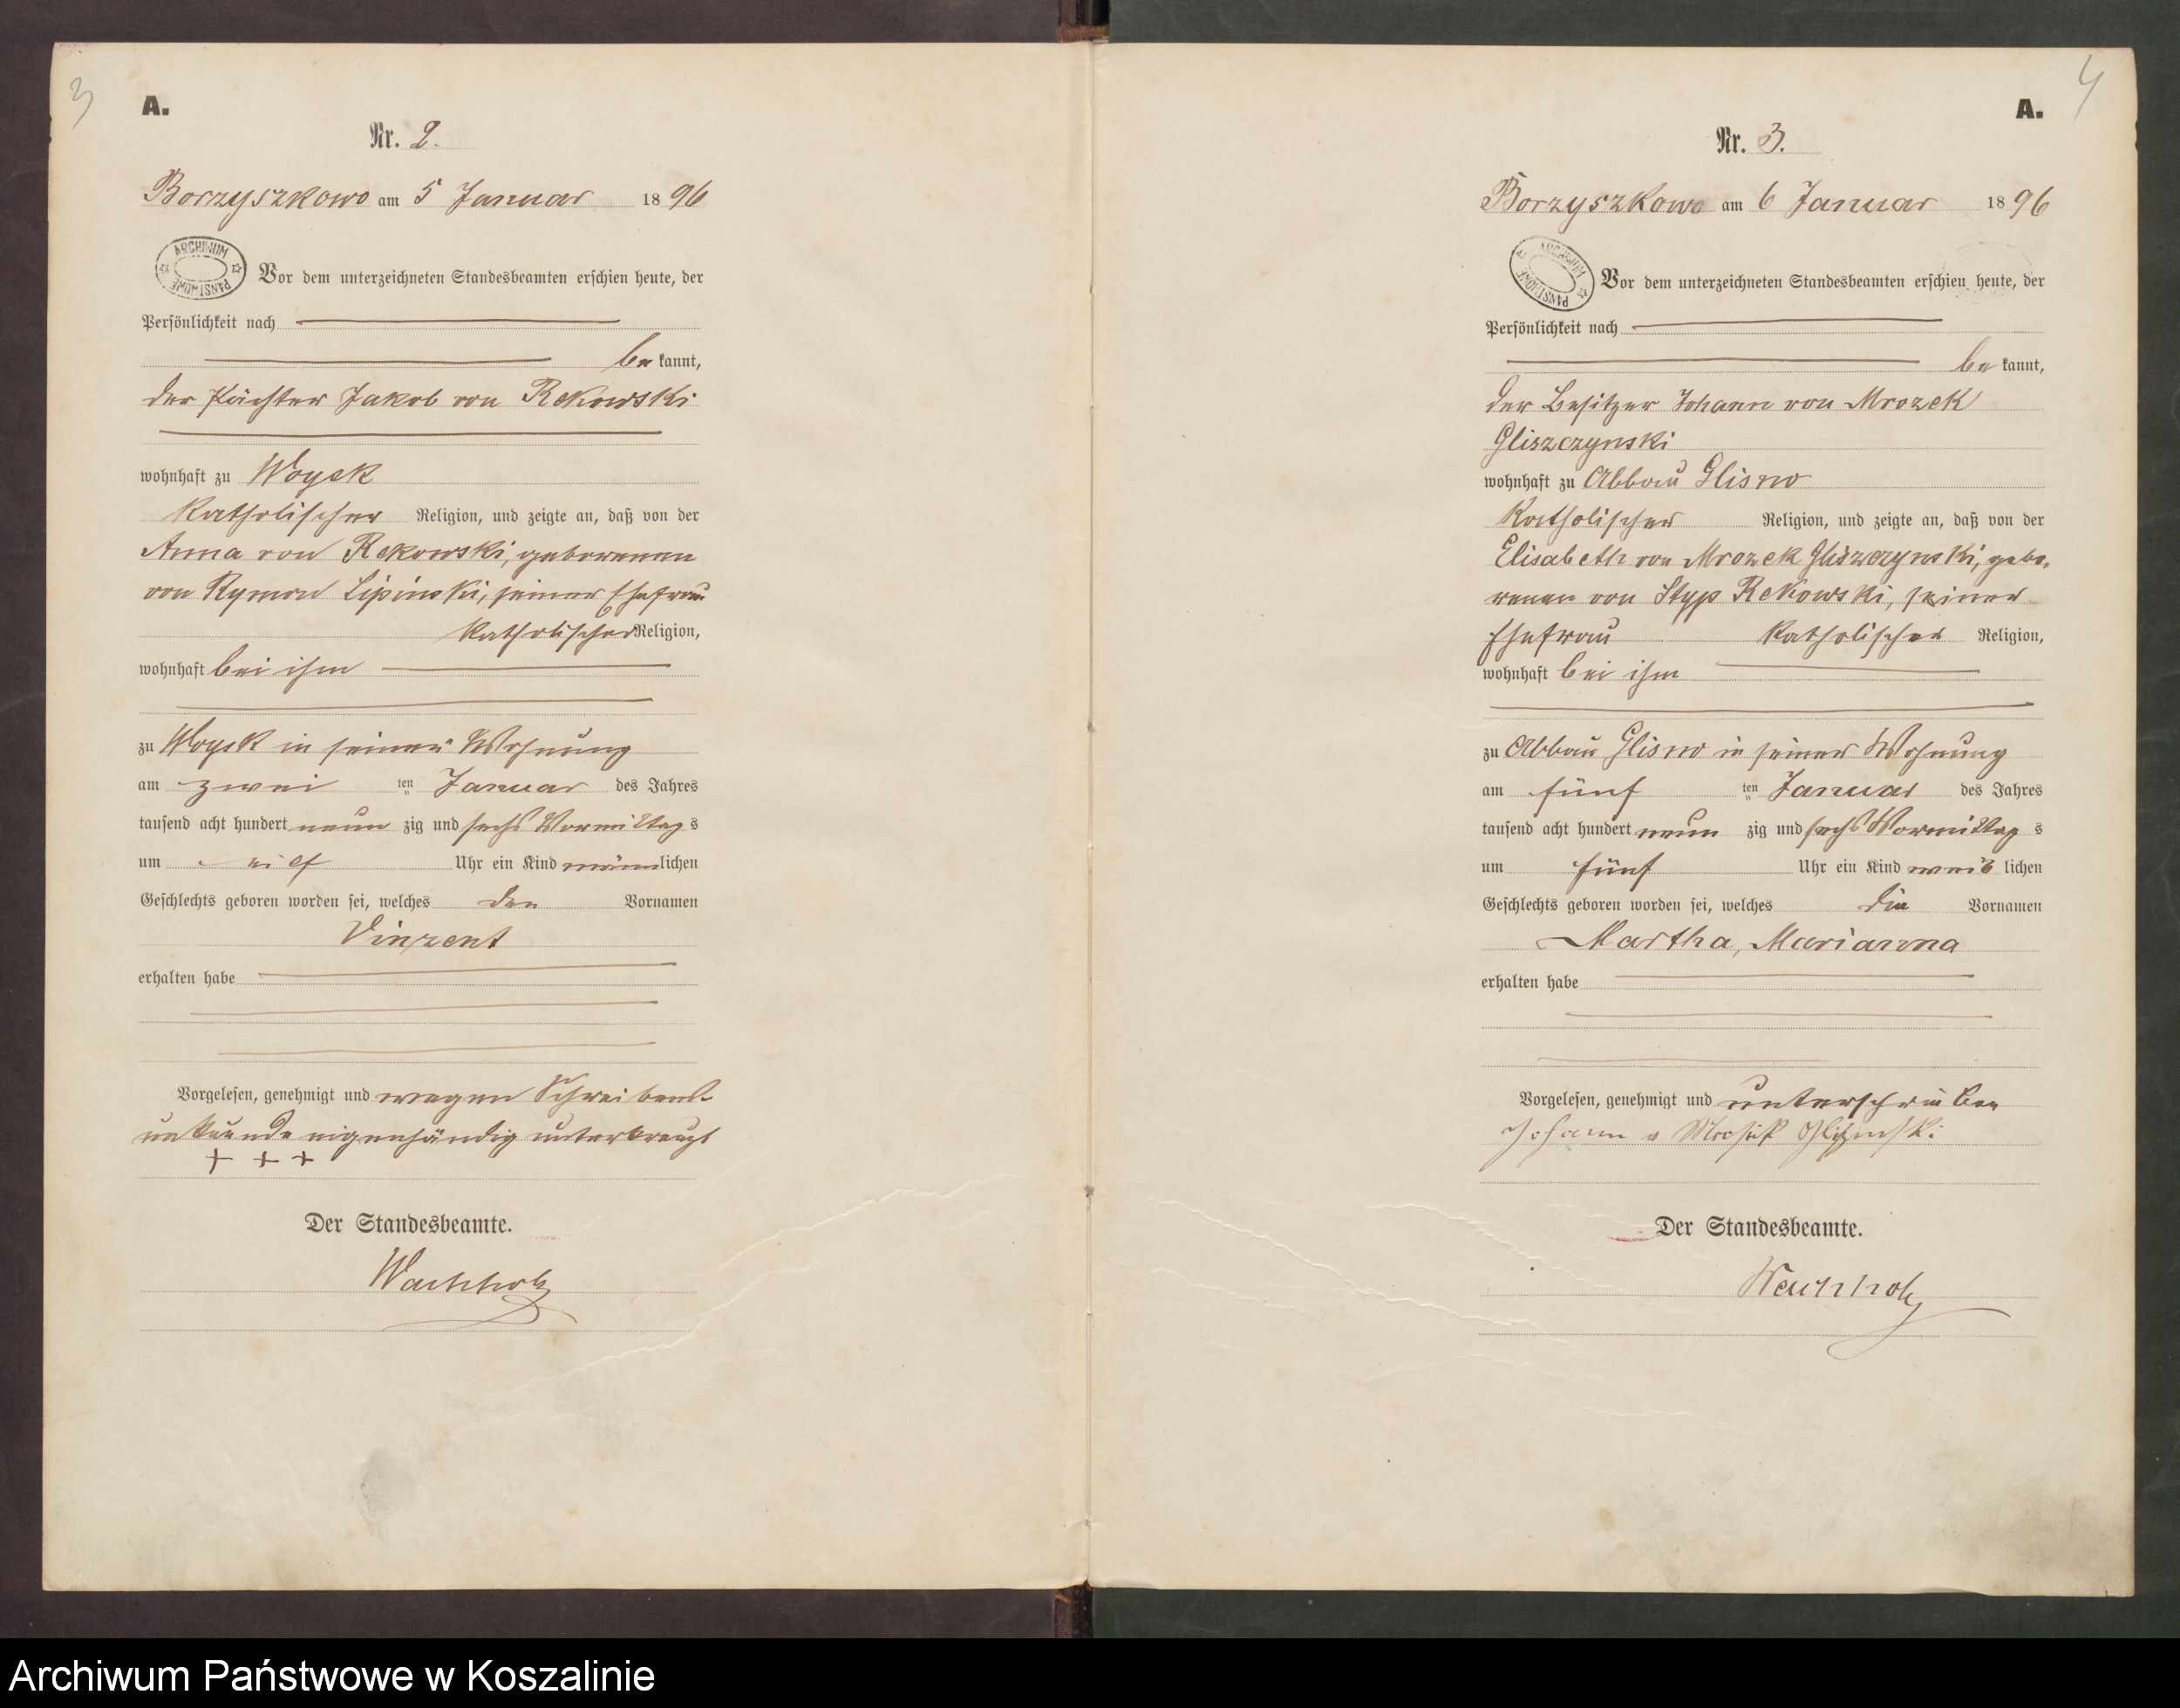 3
A.
Nr. 2.
Borzyszkowo am 5 Januar 1896
ARCHIWUM PAŃSTWOWE
Vor dem unterzeichneten Standesbeamten erschien heute, der
Persönlichkeit nach
be kannt,
der Pächter Jakob von Rekowski
wohnhaft zu Woyek
katholischer Religion, und zeigte an, daß von der
Anna von Rekowski, geborenen
von Rymon Lipinski, seiner Ehefrau
katholischer Religion,
wohnhaft bei ihm
zu Woyek in seiner Wohnung
am zwei ten Januar des Jahres
tausend acht hundert neun zig und sechs Vormittag s
um elf Uhr ein Kind männlichen
Geschlechts geboren worden sei, welches den Vornamen
Vinzent
erhalten habe
Vorgelesen, genehmigt und wegen Schreibens-
unkunde eigenhändig unterkreuzt
+ + +
Der Standesbeamte.
Wachholz
4
A.
Nr. 3.
Borzyszkowo am 6 Januar 1896
ARCHIWUM PAŃSTWOWE
Vor dem unterzeichneten Standesbeamten erschien heute, der
Persönlichkeit nach
be kannt,
der Besitzer Johann von Mrozek
Gliszczynski
wohnhaft zu Abbau Glisno
katholischer Religion, und zeigte an, daß von der
Elisabeth von Mrozek Gliszczynski, gebo-
renen von Styp Rekowski, seiner
Ehefrau katholischer Religion,
wohnhaft bei ihm
zu Abbau Glisno in seiner Wohnung
am fünf ten Januar des Jahres
tausend acht hundert neun zig und sechs Vormittag s
um fünf Uhr ein Kind weib lichen
Geschlechts geboren worden sei, welches die Vornamen
Martha, Marianna
erhalten habe
Vorgelesen, genehmigt und unterschrieben
Johann v
Der Standesbeamte.
Wachholz
Archiwum Państwowe w Koszalinie